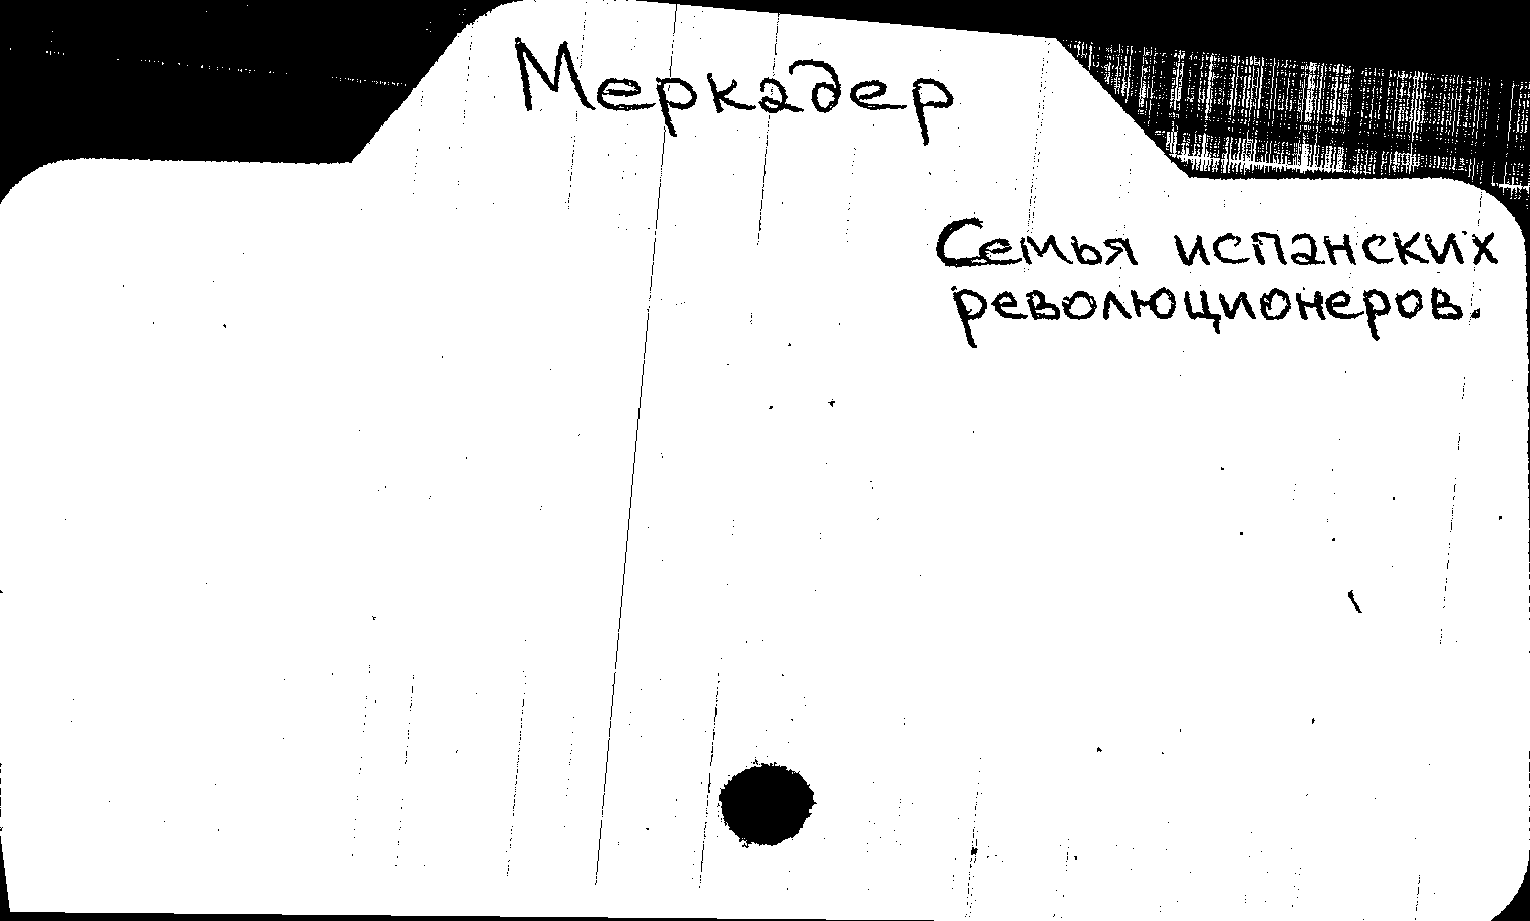 Меркадер
Семья испанских
революционеров.